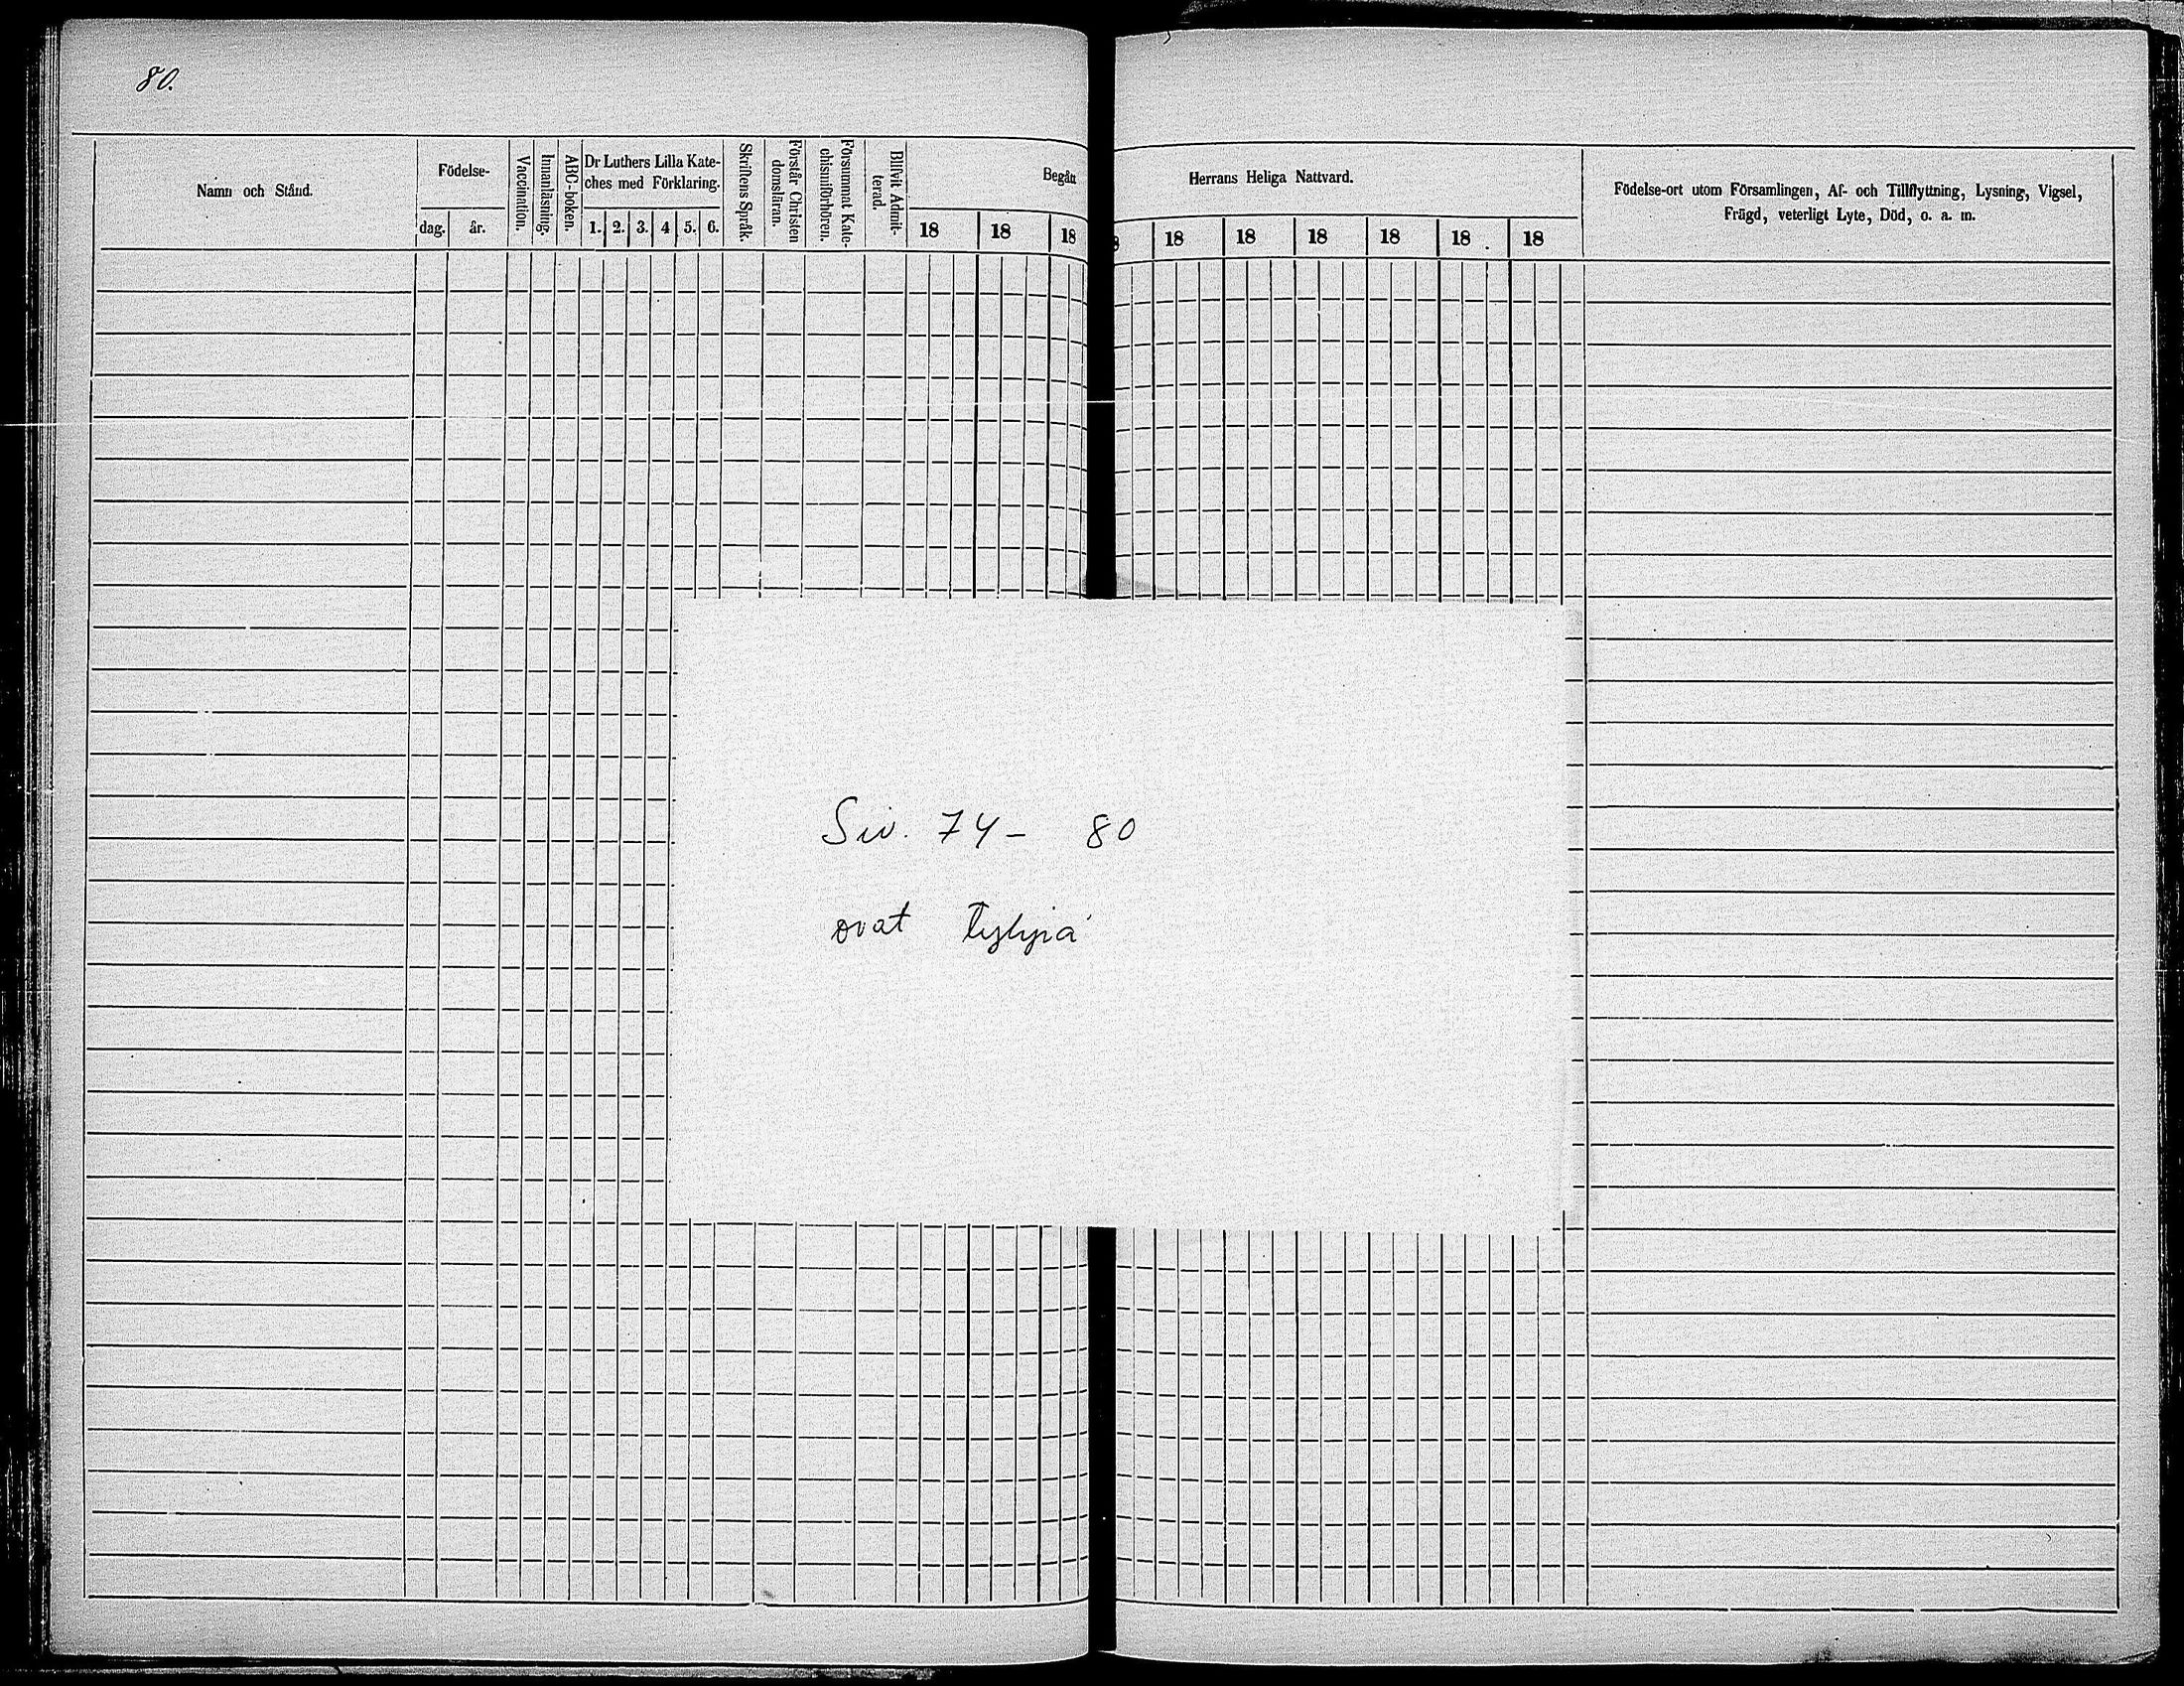 80.
Namn och Stånd.
Födelse-
dag.
år.
Vaccination.
Innanläsning.
ABC-boken.
Dr Luthers Lilla Kate-
ches med Förklaring.
1. 2. 3. 4 5. 6.
Skriftens Språk.
Förstår Christen
domsläran.
Försummat Kate-
chismiförhören.
Blifvit Admit-
terad.
Begått
18 18 18
Herrans Heliga Nattvard.
8 18 18 18 18 18 18
Födelse-ort utom Församlingen, Af- och Tillflyttning, Lysning, Vigsel,
Frägd, veterligt Lyte, Död, o. a. m.
Siv. 74- 80
ovat tyhjiä